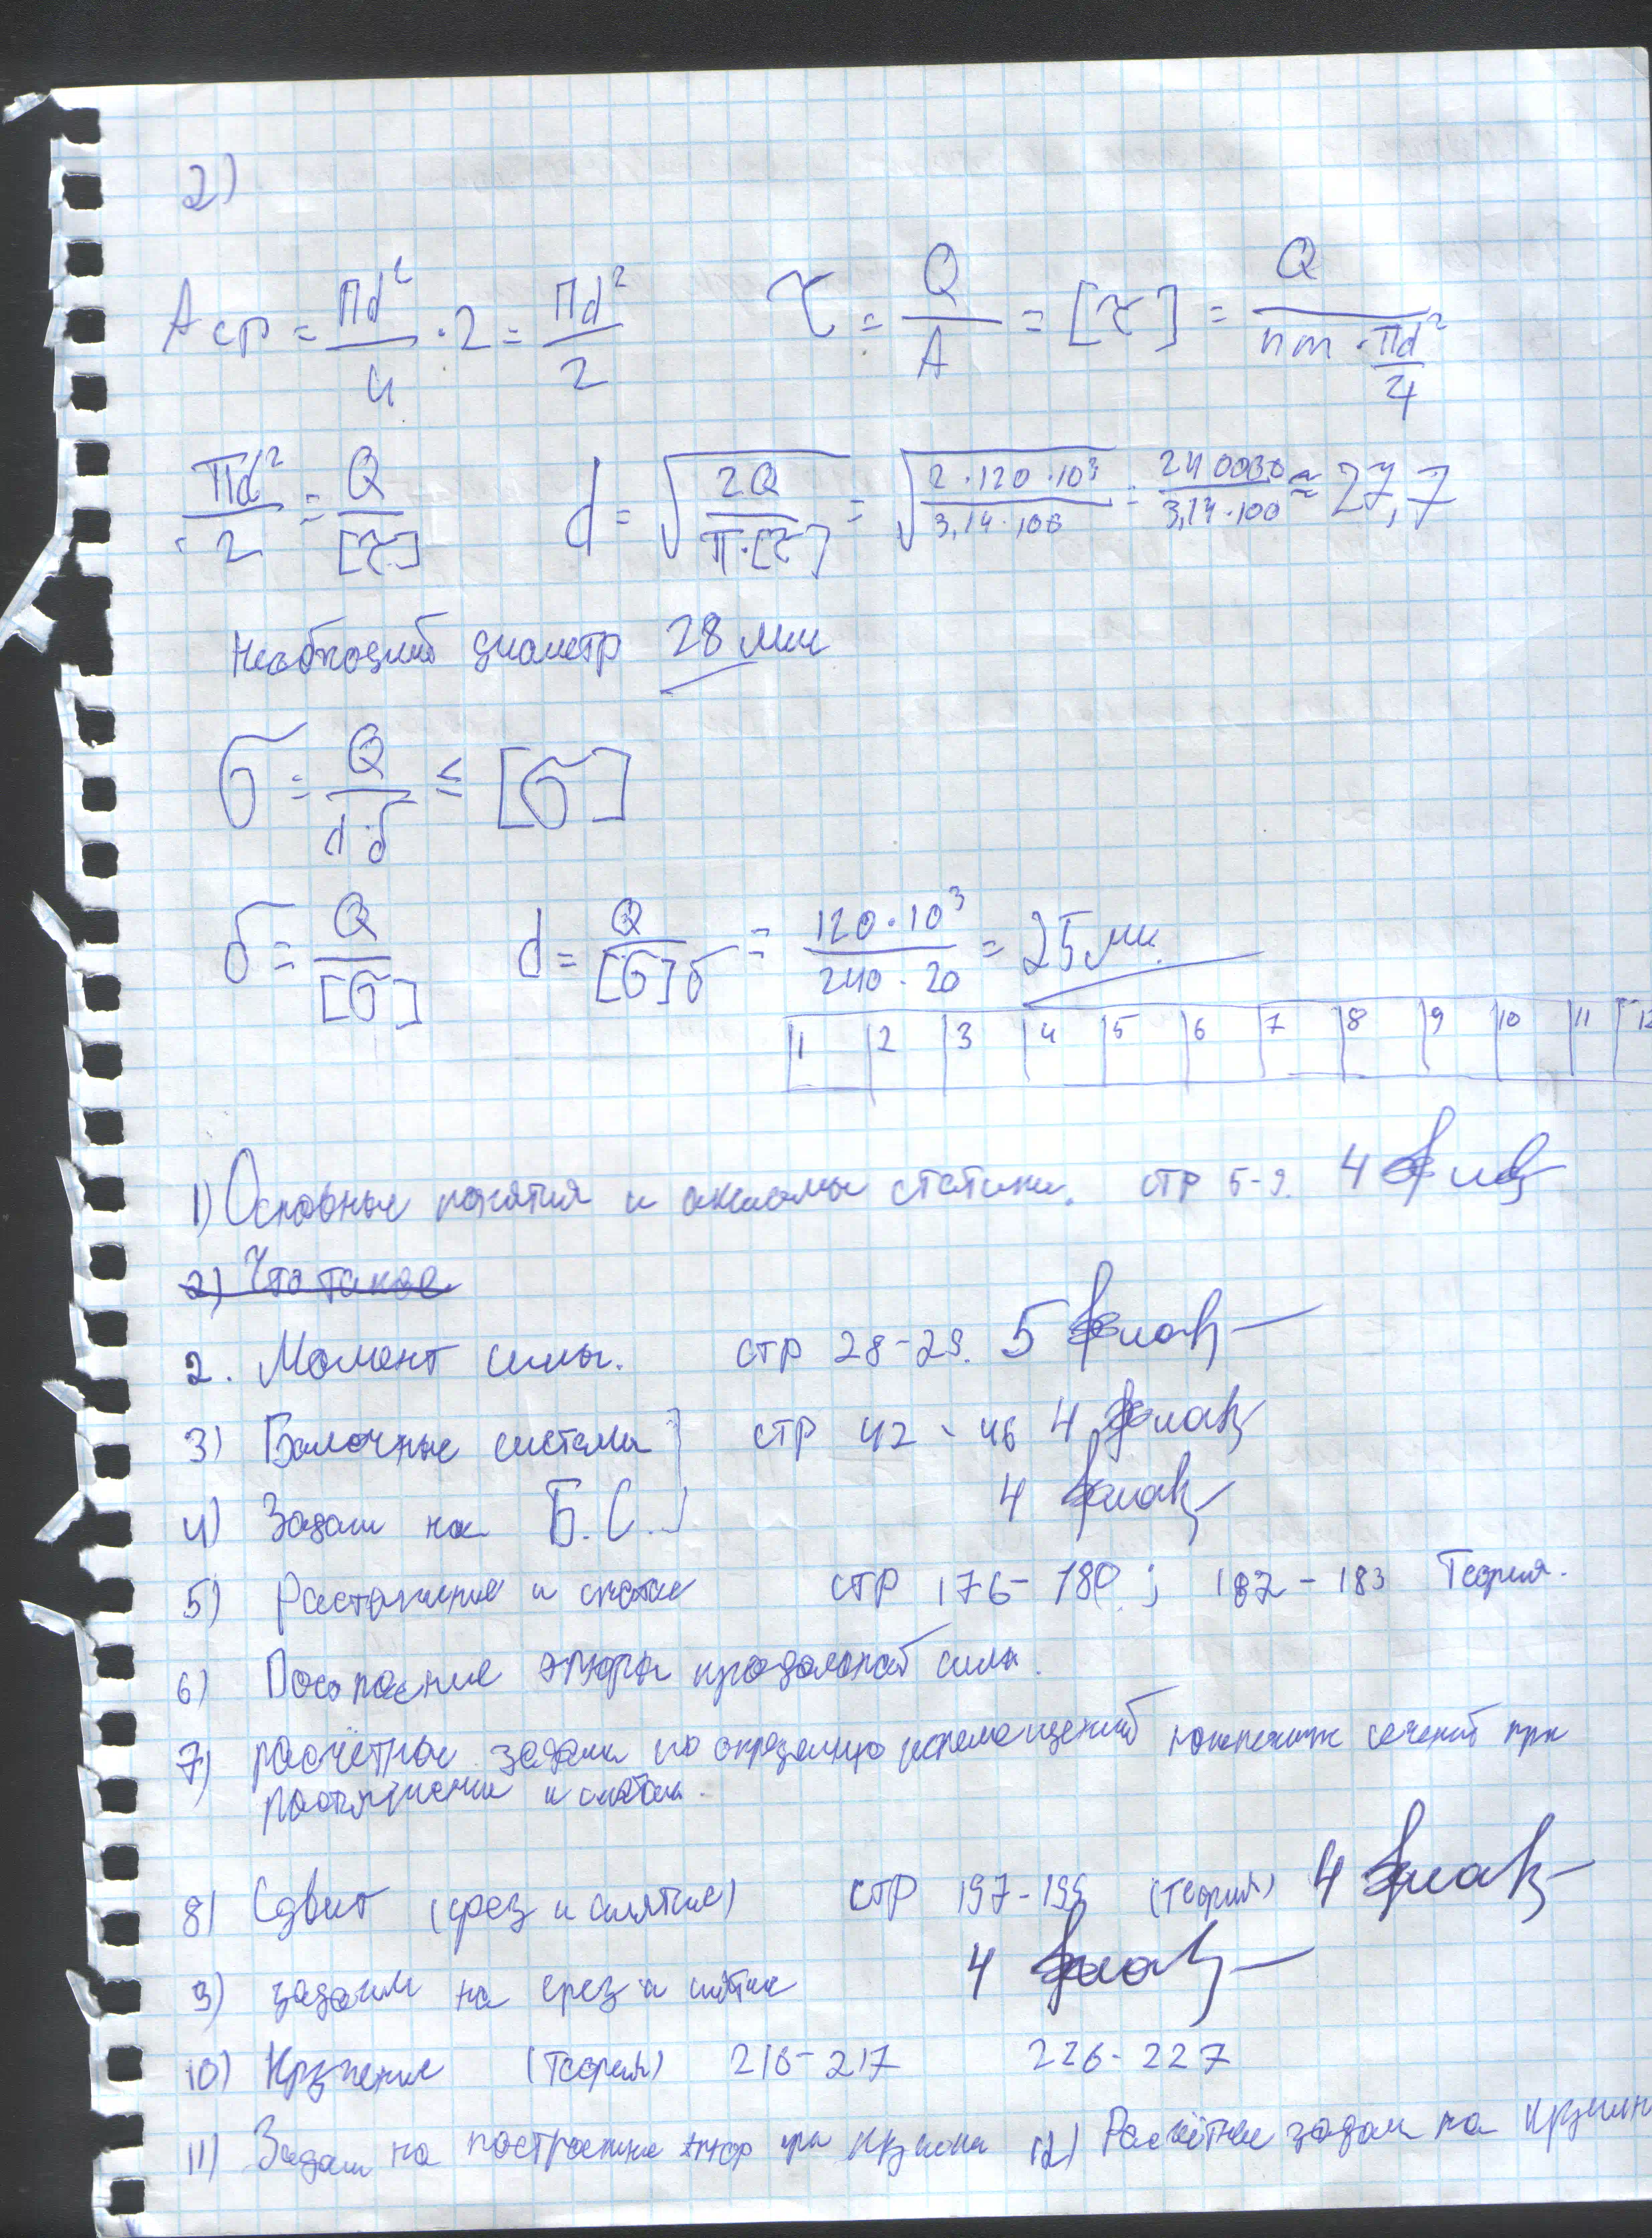 2)
Aср = Пd²/4 · 2 = Пd²/2 τ = Q/A = [τ] = Q/(nm · Пd²/4)
Пd²/2 = Q/[τ] d = √(2Q/(П·[τ])) = √(2·120·10³/(3,14·100)) = 240000/(3,14·100) ≈ 27,7
Необходимый диаметр 28 мм
σ = Q/(d δ) ≤ [σ]
δ = Q/[σ] d = Q/([σ]δ) = 120·10³/(240·20) = 25 мм.
1 2 3 4 5 6 7 8 9 10 11 12
1) Основные понятия и аксиомы статики. стр 5-9. 4
2) Что такое
2. Момент силы. стр 28-29. 5
3) Балочные системы стр 42 - 46 4
4) Задачи на Б.С. 4
5) Растяжение и сжатие стр 176-180; 182-183 Теория.
6) Построение эпюры продольной силы.
7) расчётные задачи по перемещений сечений при
растяжении и сжатии.
8) Сдвиг (срез и смятие) стр 197-199 (Теория) 4
9) задачи на срез и смятие 4
10) Кручение (Теория) 216-217 226-227
11) Задачи на построение эпюр при кручении 12) Расчётные задачи на